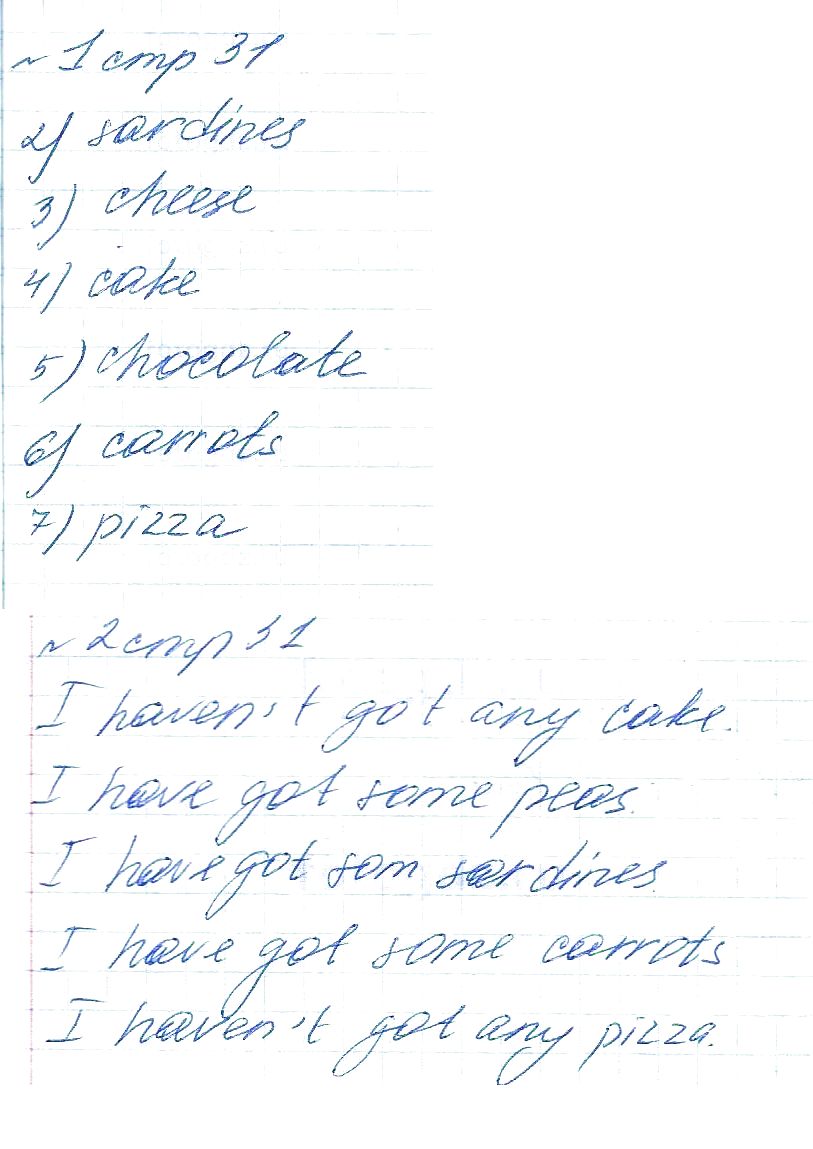 ~ 1 стр 31
2) sardines
3) cheese
4) cake
5) chocolate
6) carrots
7) pizza
~ 2 стр 31
I haven't got any cake.
I have got some peas.
I have got som sardines.
I have got some carrots
I haven't got any pizza.